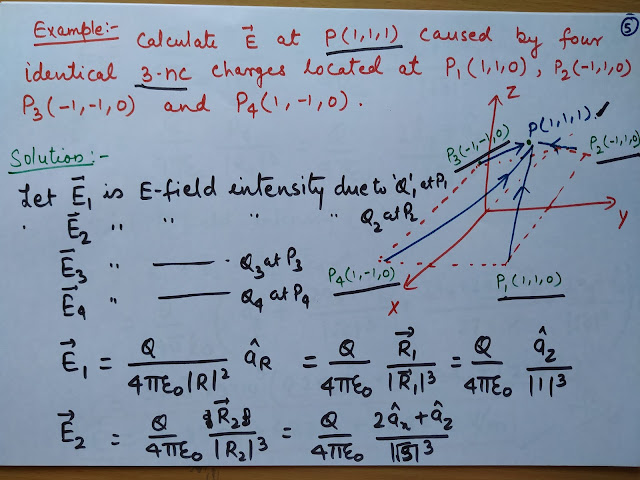 5
Example:- Calculate E⃗ at P(1,1,1) caused by four
identical 3-nc charges located at P₁(1,1,0), P₂(-1,1,0)
P₃(-1,-1,0) and P₄(1,-1,0).
Solution:-
Let E⃗₁ is E-field intensity due to 'Q', at P₁
" E⃗₂ " " " " Q₂ at P₂
E⃗₃ " —— . Q₃ at P₃
E⃗₄ " —— Q₄ at P₄
Z
P(1,1,1).
P₃(-1,-1,0)
P₂(-1,1,0)
Y
P₄(1,-1,0)
P₁(1,1,0)
X
E⃗₁ = Q / 4πε₀|R|² â_R = Q / 4πε₀ R⃗₁ / |R⃗₁|³ = Q / 4πε₀ â_z / |1|³
E⃗₂ = Q / 4πε₀ R⃗₂ / |R₂|³ = Q / 4πε₀ 2âₓ + â_z / |√5|³